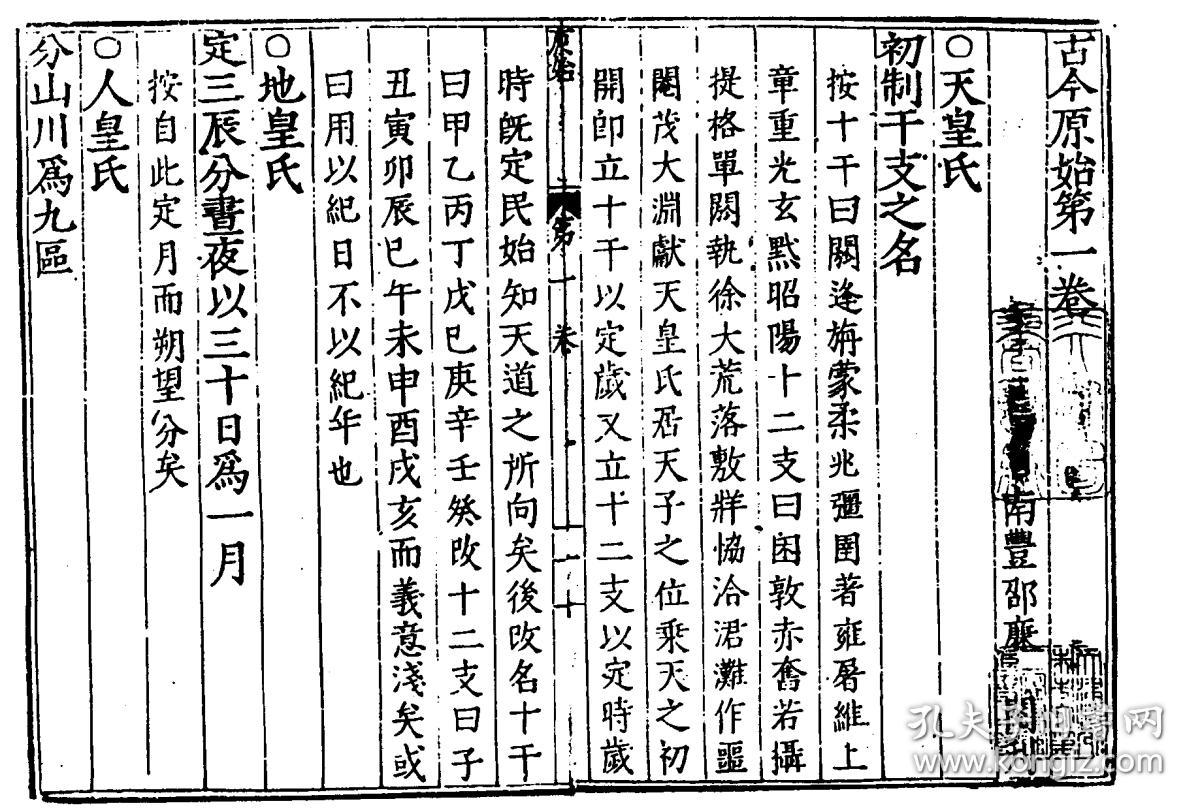 古今原始第一卷
南豐邵廉
○天皇氏
初制干支之名
按十干曰閼逢旃蒙柔兆彊圉著雍屠維上
章重光玄黓昭陽十二支曰困敦赤奮若攝
提格單閼執徐大荒落敷牂協洽涒灘作噩
閹茂大淵獻天皇氏居天子之位乘天之初
開即立十干以定歲又立十二支以定時歲
原始
第一卷
時既定民始知天道之所向矣後改名十干
曰甲乙丙丁戊己庚辛壬癸改十二支曰子
丑寅卯辰巳午未申酉戌亥而義意淺矣或
曰用以紀日不以紀年也
○地皇氏
定三辰分晝夜以三十日爲一月
按自此定月而朔望分矣
○人皇氏
分山川爲九區
孔夫子旧书网
www.kongfz.com